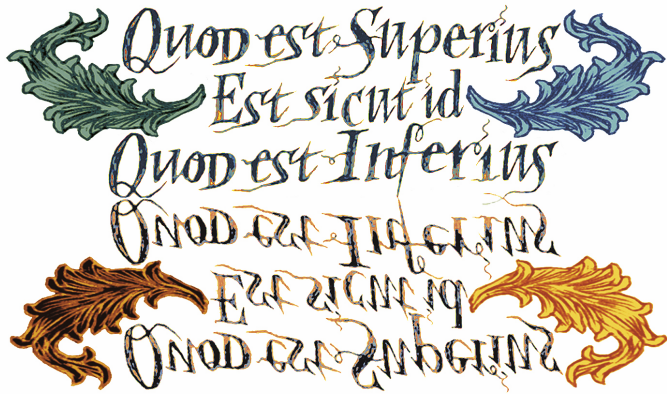 Quod est Superius
Est sicut id
Quod est Inferius
Quod est Inferius
Est sicut id
Quod est Superius